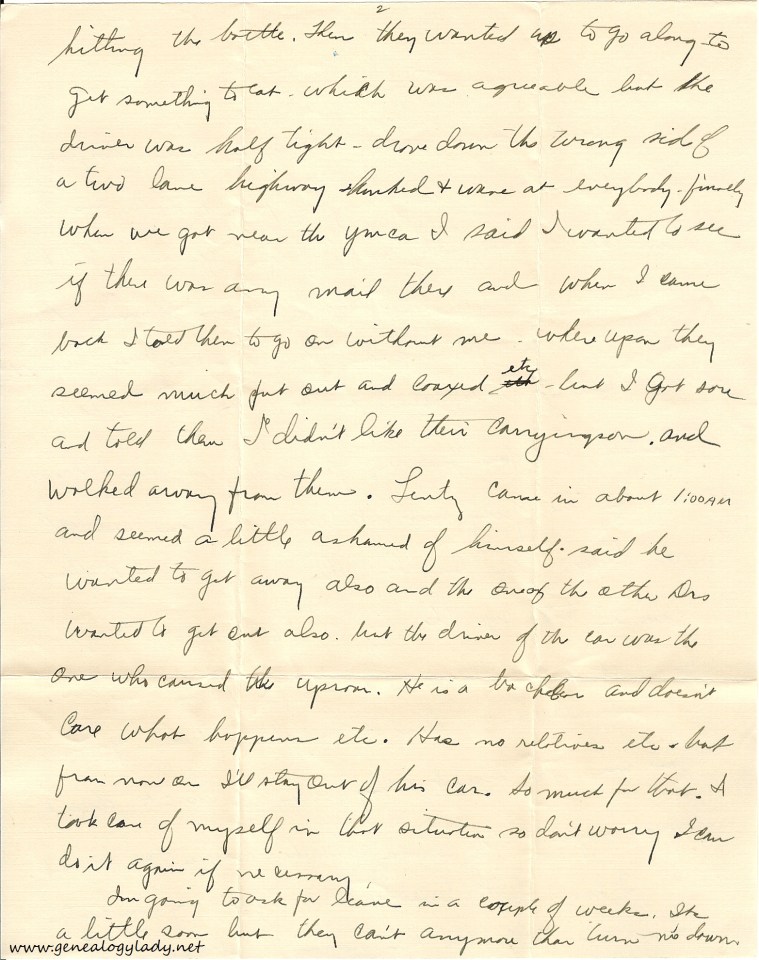 2
hitting the bottle. Then they wanted us to go along to
get something to eat - which was agreeable but the
driver was half tight - drove down the wrong side of
a two lane highway & wave at everybody - finaly
when we got near the YMCA I said I wanted to see
if there was any mail there and when I came
back I told them to go on without me - where upon they
seemed much put out and coaxed etc - but I got sore
and told them I didn't like their carryingson. and
walked away from them. Lentz came in about 1:00AM
and seemed a little ashamed of himself. said he
wanted to get away also and the one of the other Drs
wanted to get out also. but the driver of the car was the
one who caused the uproar. He is a bachelor and doesn't
care what happens etc. Has no relatives etc - but
from now on I'll stay out of his car. So much for that. I
took care of myself in that situation so don't worry I can
do it again if necessary,
I'm going to ask for leave in a couple of weeks. Its
a little soon but they can't anymore than turn me down.
www.genealogylady.net